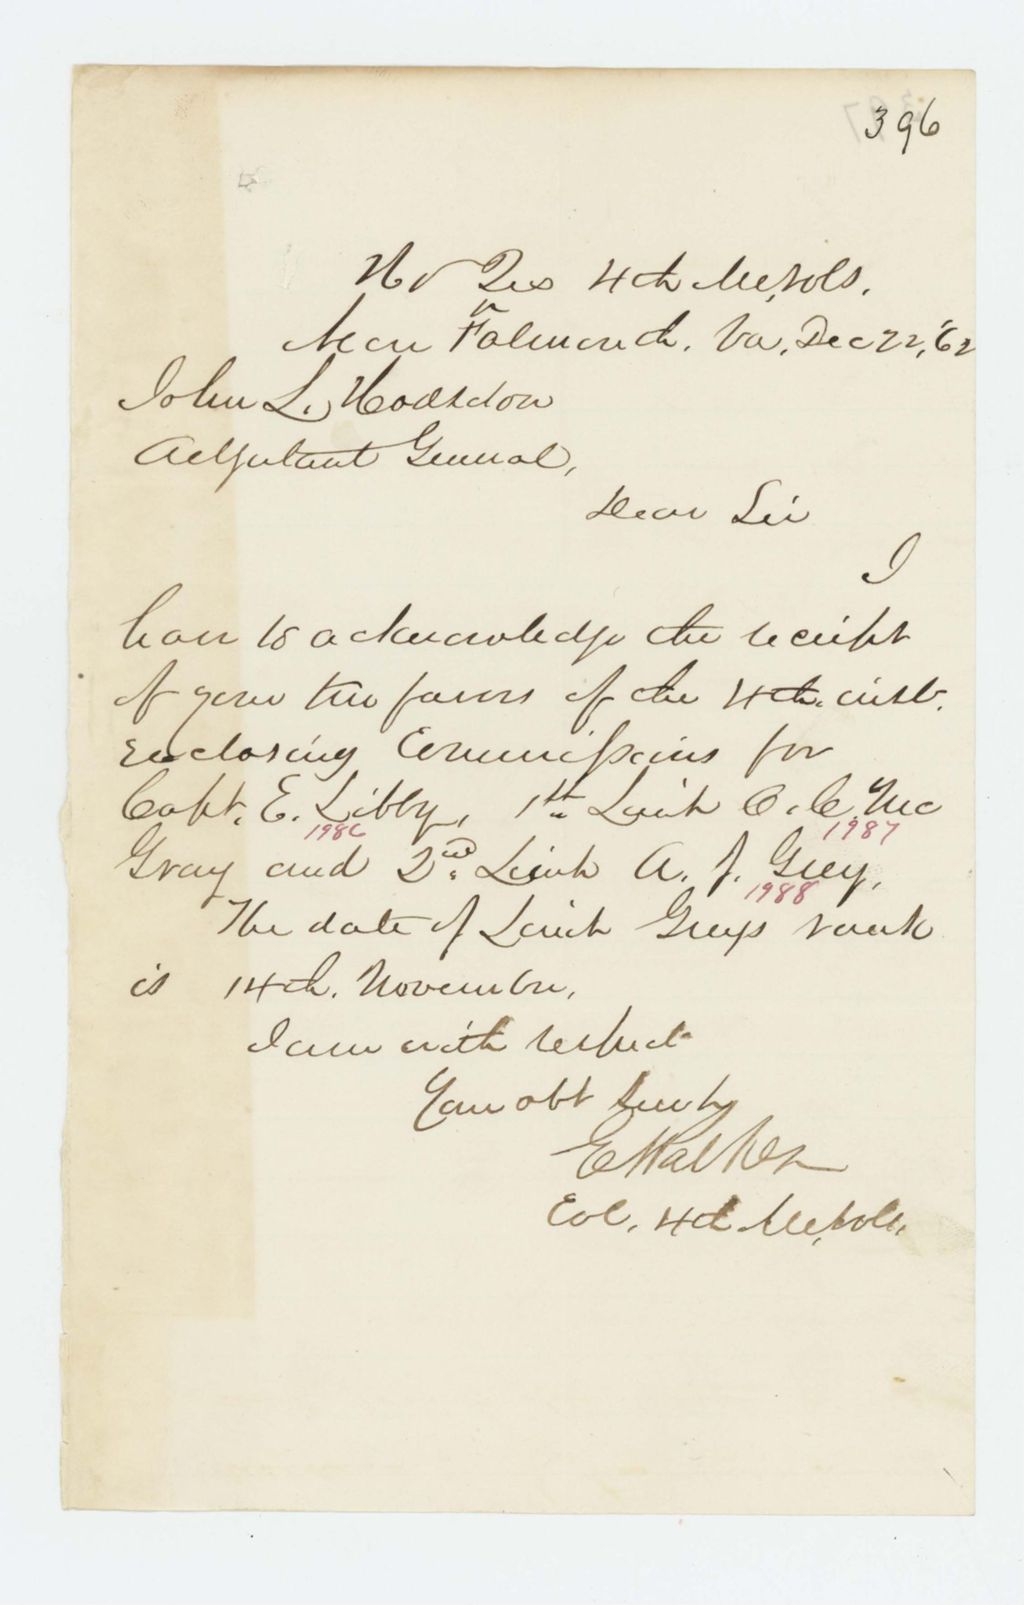 396
Hd Qrs 4th Me, Vols.
Near Falmouth. Va, Dec 22, '62
John L. Hodsdon
Adjutant General,
Dear Sir
I
have to acknowledge the receipt
of your two favors of the 4th. inst.
Enclosing Commissions for
Capt. E. Libby, 1st. Lieut O. C. Mc
1986 1987
Gray and 2nd. Lieut A. J. Grey,
1988
The date of Lieut Greys rank
is 14th. November,
I am with respect
Your obt Servt,
E Walker
Col, 4th Me, Vols,